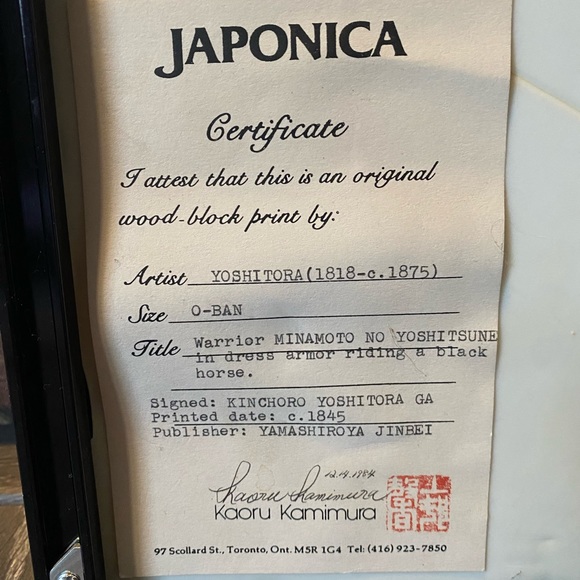 JAPONICA
Certificate
I attest that this is an original
wood-block print by:
Artist YOSHITORA(1818-c.1875)
Size O-BAN
Title Warrior MINAMOTO NO YOSHITSUNE
in dress armor riding a black
horse.
Signed: KINCHORO YOSHITORA GA
Printed date: c.1845
Publisher: YAMASHIROYA JINBEI
12.19.1984
Kaoru Kamimura
Kaoru Kamimura
97 Scollard St., Toronto, Ont. M5R 1G4 Tel: (416) 923-7850